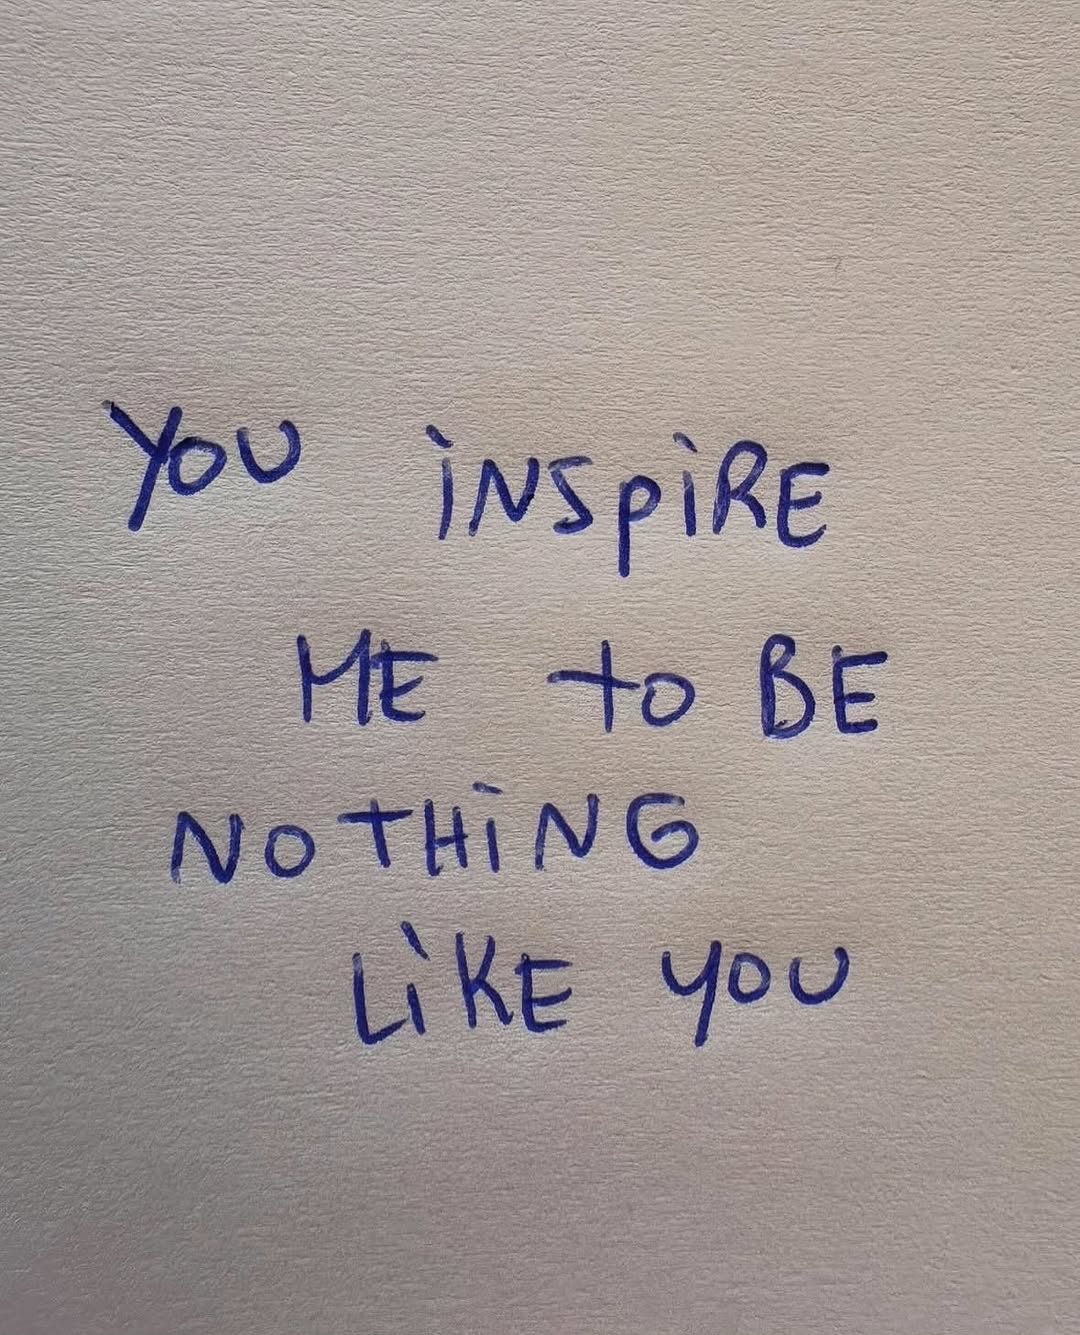 YOU iNSpiRE
ME to BE
NOTHiNG
LiKE YOU